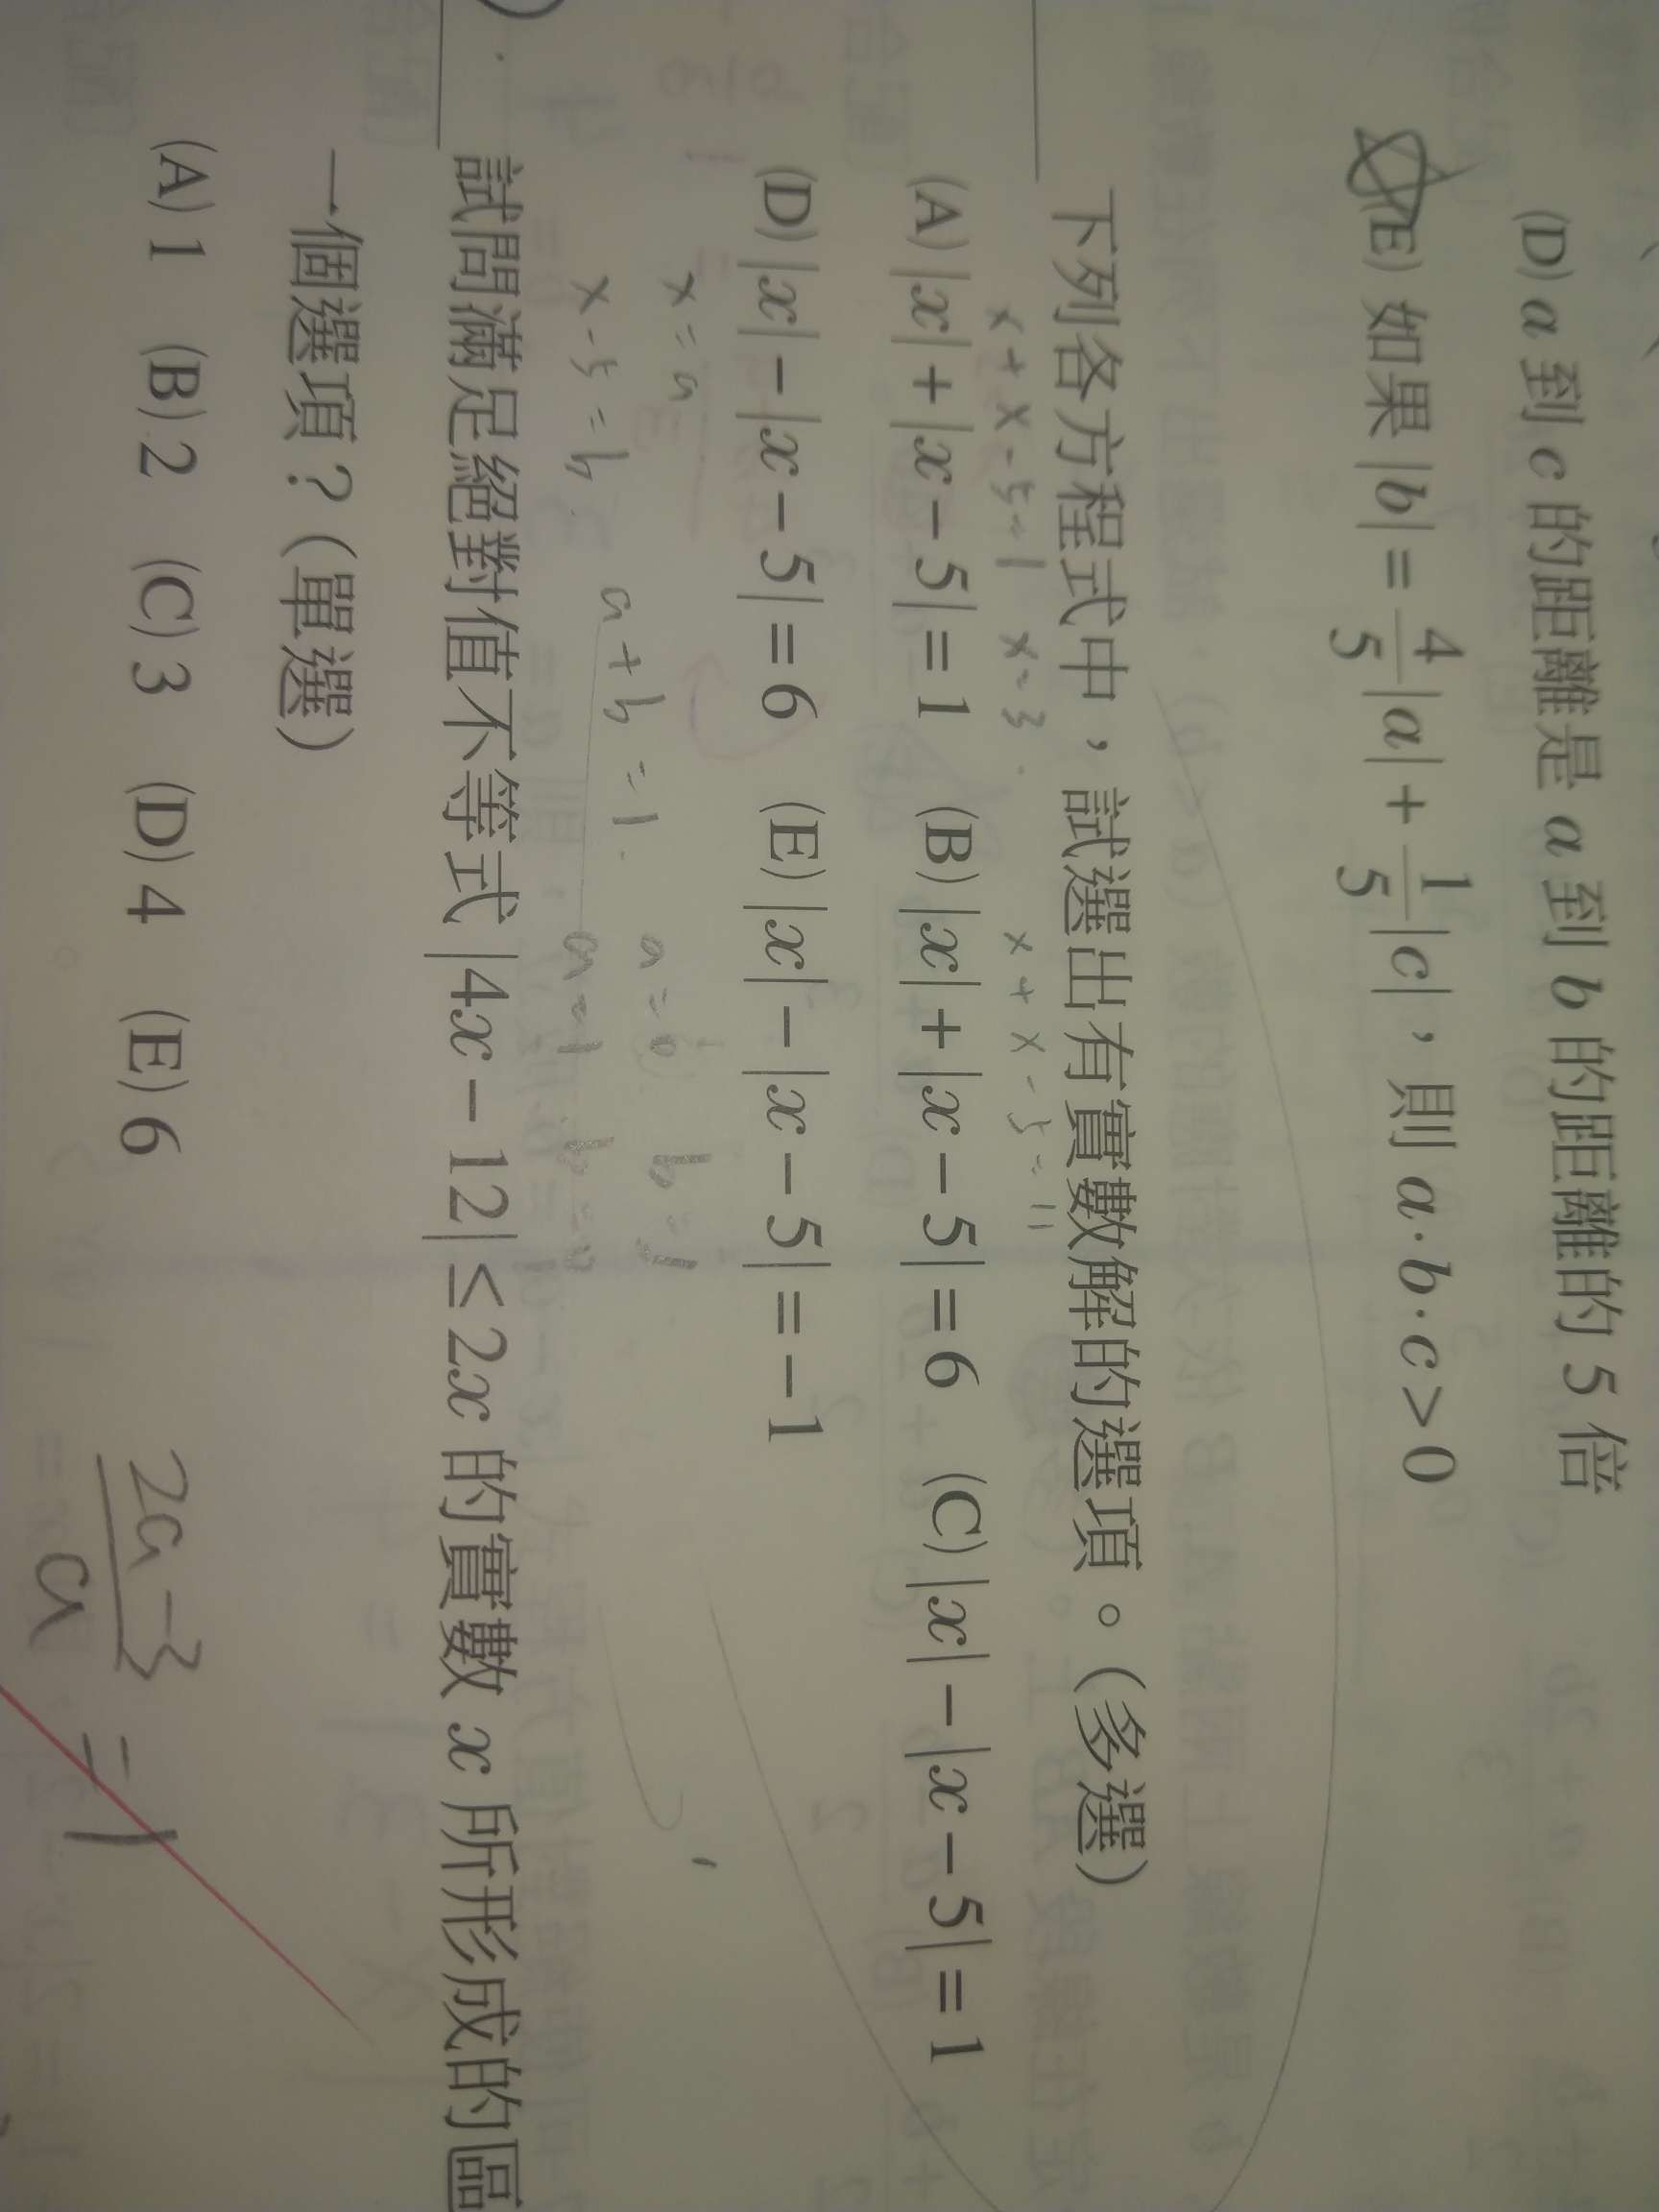 (D) a 到 c 的距離是 a 到 b 的距離的 5 倍
(E) 如果 |b| = 4/5|a| + 1/5|c|，則 a · b · c > 0
下列各方程式中，試選出有實數解的選項。（多選）
x + x - 5 = 1 x = 3 x + x - 5 = 11
(A) |x| + |x − 5| = 1 (B) |x| + |x − 5| = 6 (C) |x| − |x − 5| = 1
(D) |x| − |x − 5| = 6 (E) |x| − |x − 5| = − 1
x = a a = 0 b = 1
x - 5 = b a + b = 1 a = 1 b = 0
試問滿足絕對值不等式 |4x − 12| ≤ 2x 的實數 x 所形成的區
一個選項？（單選）
(A) 1 (B) 2 (C) 3 (D) 4 (E) 6
2a - 3
a = 1